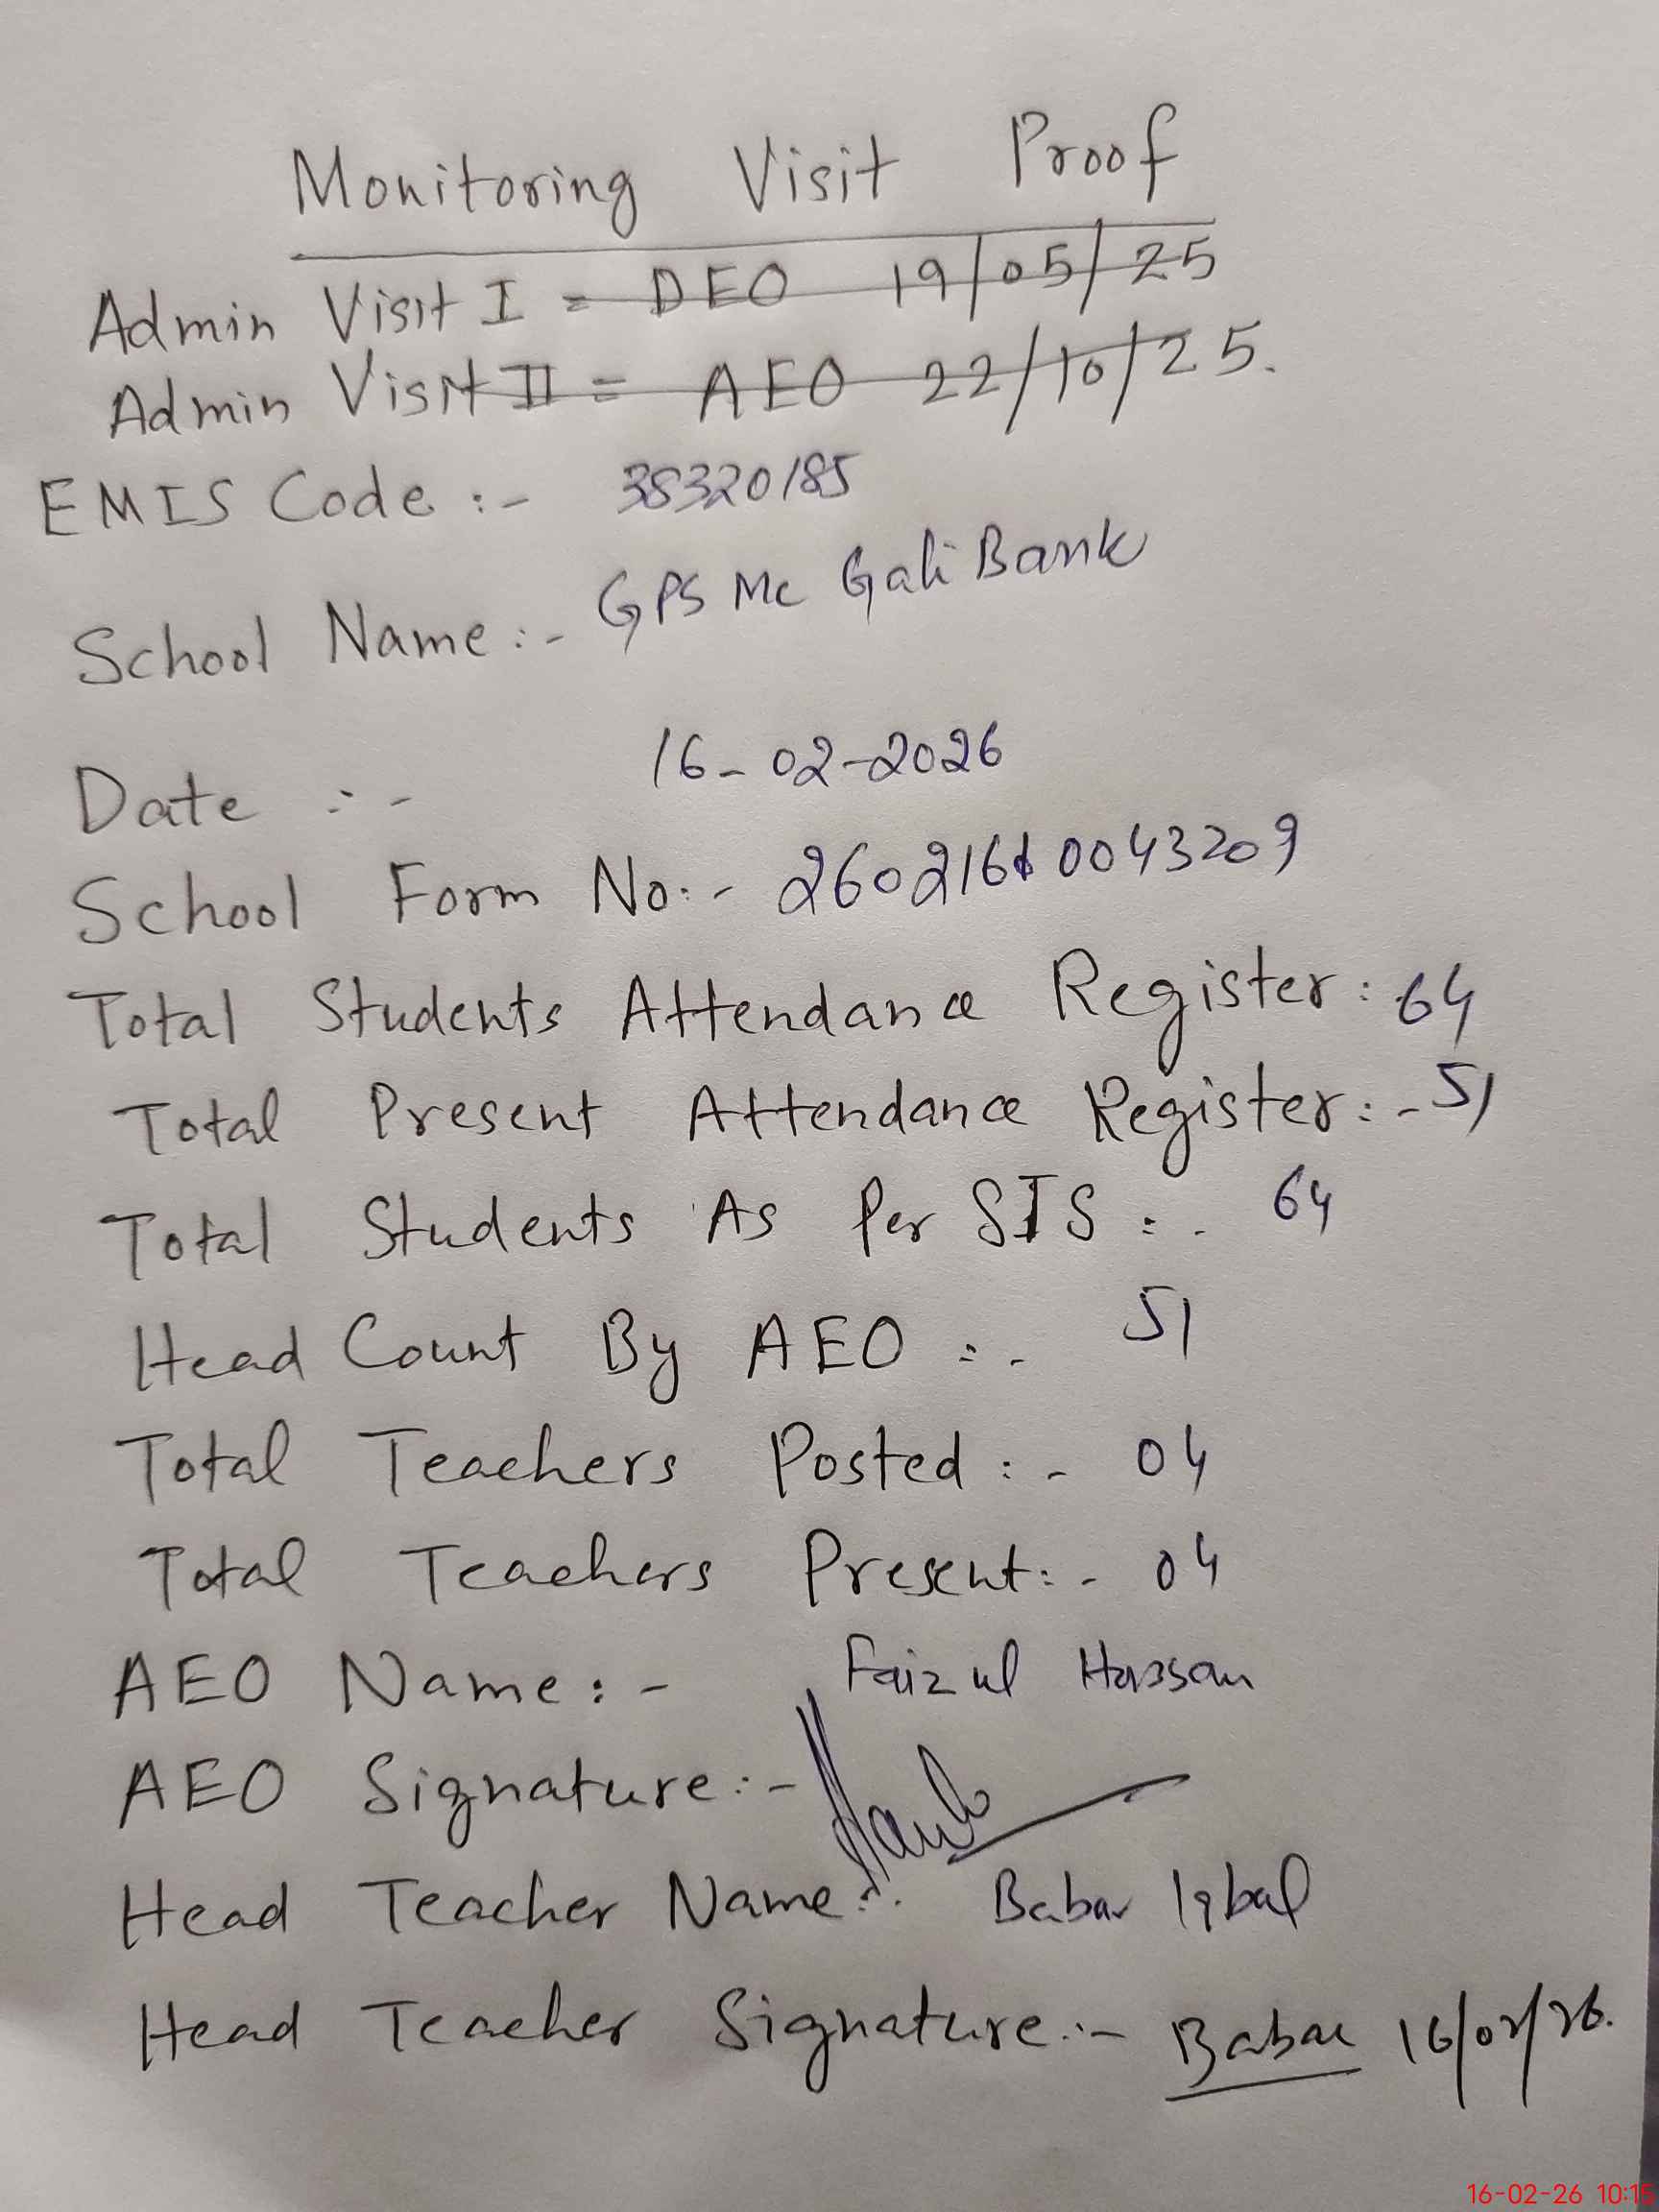 Monitoring Visit Proof
Admin Visit I = DEO 19/05/25
Admin Visit II = AEO 22/10/25.
EMIS Code :- 38320185
School Name :- GPS Mc Gali Bank
Date :- 16-02-2026
School Form No:- 260216 0043209
Total Students Attendance Register: 64
Total Present Attendance Register:- 51
Total Students As Per SIS :- 64
Head Count By AEO :- 51
Total Teachers Posted :- 04
Total Teachers Present:- 04
AEO Name :- Faiz ul Hassan
AEO Signature:-
Head Teacher Name:- Babar Iqbal
Head Teacher Signature:- Babar 16/02/26.
16-02-26 10:15